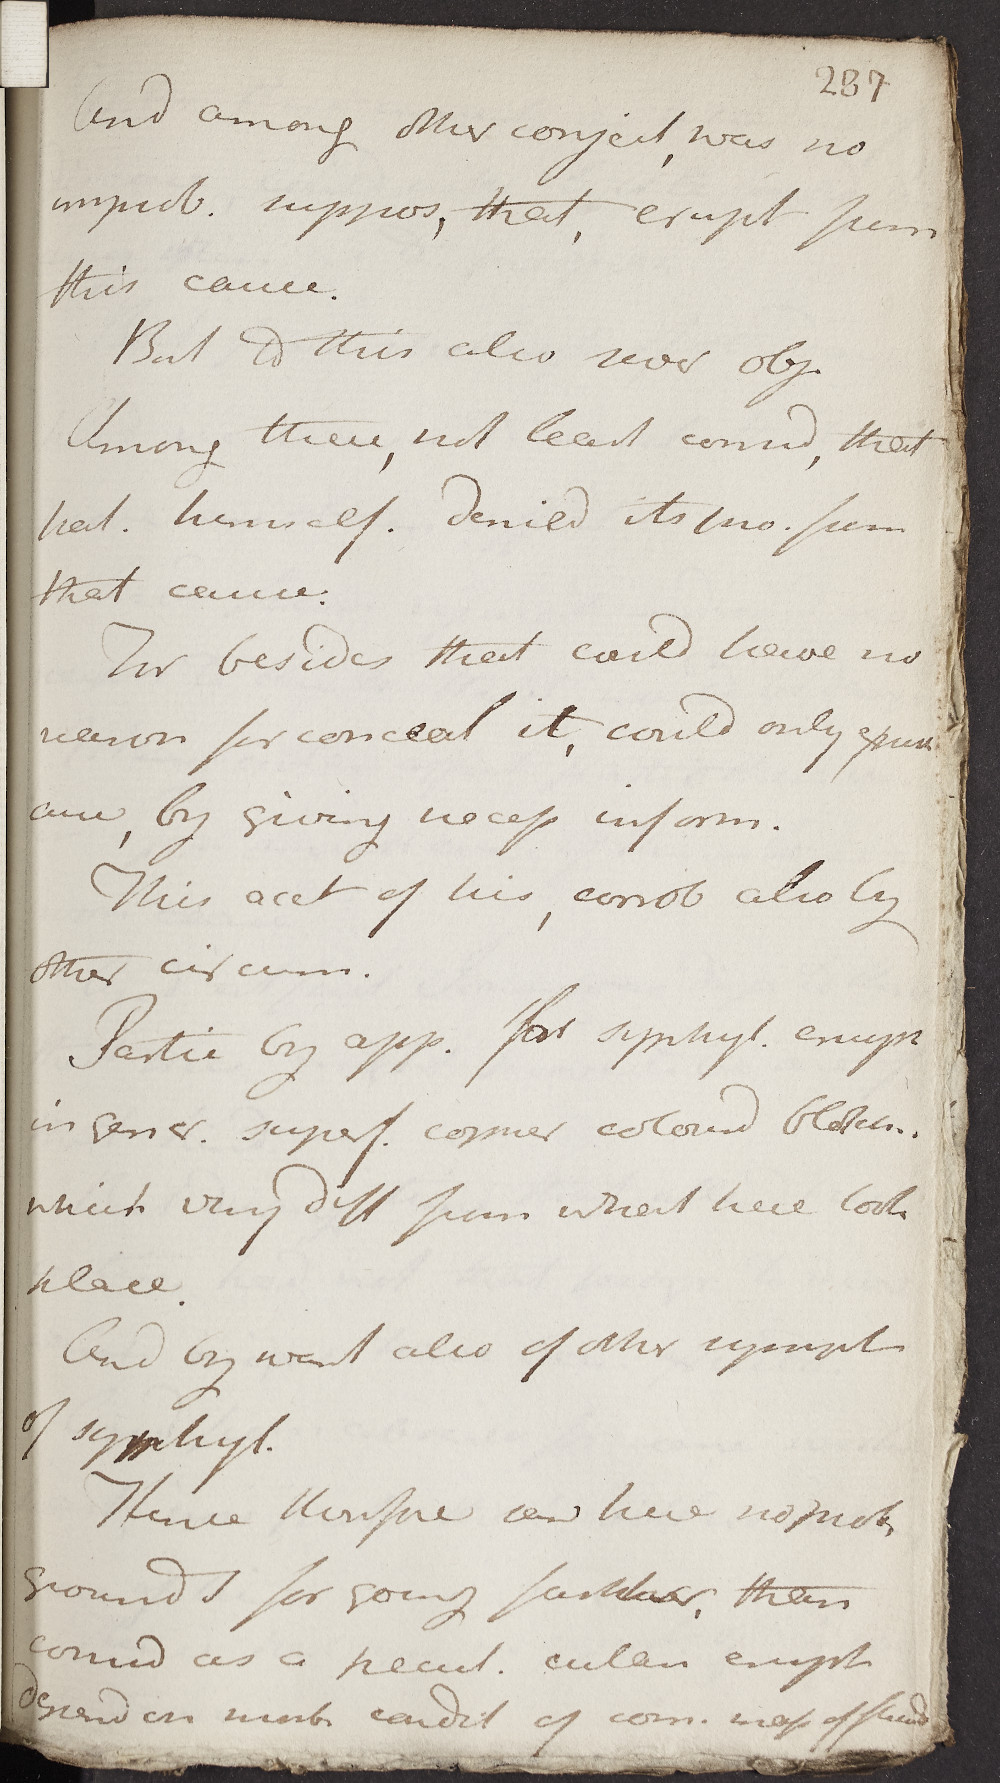 237
And among other conject, was no
improb. suppos, that, erupt from
this cause.
But to this also sever obj.
Among these, not least consid, that
pat. himself. denied its pro. from
that cause.
For besides that could have no
reason for conceal it, could only expect
cure, by giving necess inform.
This acct of his, corrob also by
other circum.
Partic by app. for syphyl. erupt
in gener. superf. copper colourd blotch.
which very diff from what here took
place.
And by want also of other sympt
of syphyl.
Hence therefore saw here no prob
grounds for going farther, than
consid as a pecul. cutan erupt
depend on morb condit of com. mass of fluid